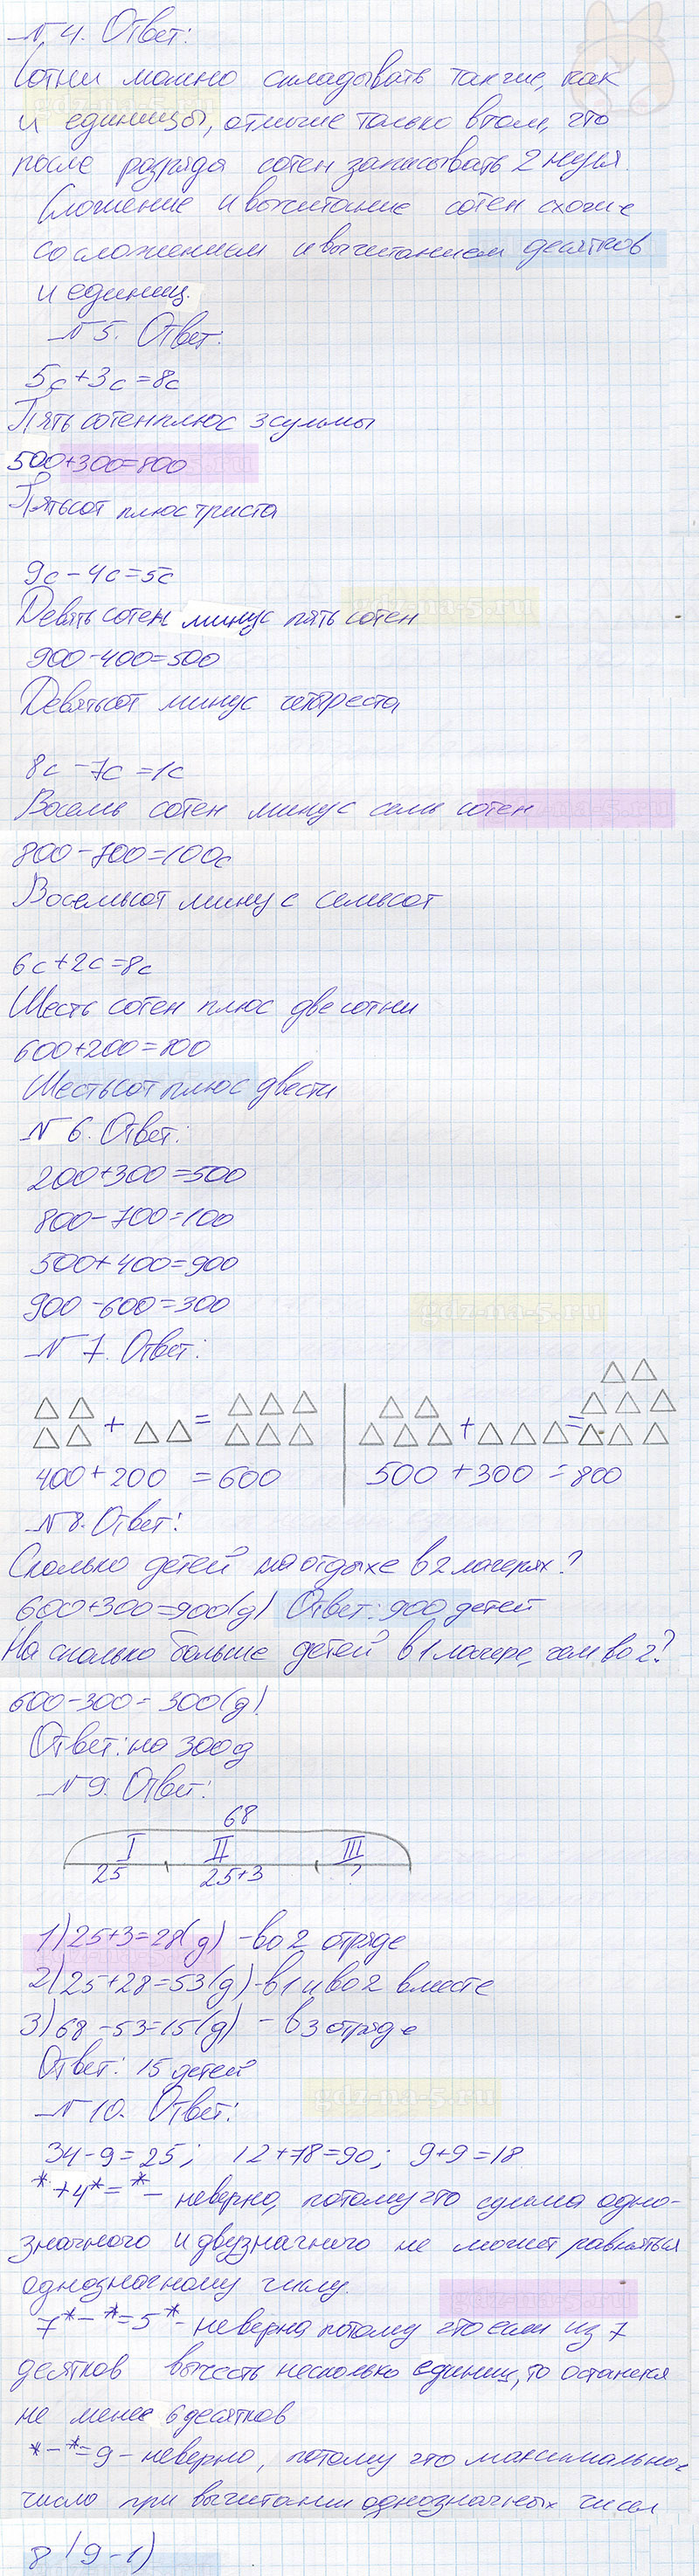 № 4. Ответ:
Сотни можно складывать также, как
и единицы, отличие только в том, что
после разряда сотен записывать 2 нуля.
Сложение и вычитание сотен схожие
со сложением и вычитанием десятков
и единиц.
№ 5. Ответ:
5с+3с=8с
Пять сотен плюс 3 суммы
500+300=800
Пятьсот плюс триста
9с-4с=5с
Девять сотен минус пять сотен
900-400=500
Девятьсот минус четыреста
8с-7с=1с
Восемь сотен минус семь сотен
800-700=100с
Восемьсот минус семьсот
6с+2с=8с
Шесть сотен плюс две сотни
600+200=800
Шестьсот плюс двести
№ 6. Ответ:
200+300=500
800-700=100
500+400=900
900-600=300
gdz-na-5.ru
№ 7. Ответ:
+ = + =
400+200 =600 500+300=800
№ 8. Ответ:
Сколько детей на отдыхе в 2 лагерях?
600+300=900(д) Ответ: 900 детей
На сколько больше детей в 1 лагере, чем во 2?
600-300=300(д).
Ответ: на 300 д
№ 9. Ответ:
68
I II III
25 25+3 ?
1) 25+3=28(д) - во 2 отряде
2) 25+28=53(д) - в 1 и во 2 вместе
3) 68-53=15(д) - в 3 отряде
Ответ: 15 детей
gdz-na-5.ru
№ 10. Ответ:
34-9=25; 12+78=90; 9+9=18
*+4*=* - неверно, потому что сумма одно-
значного и двузначного не может равняться
однозначному числу.
7*-*=5* - неверно потому что если из 7
десятков вычесть несколько единиц, то останется
не менее 6 десятков
*-*=9 - неверно, потому что максимальное
число при вычитании однозначных чисел
8 (9-1)